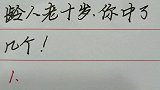 龄人老十岁.你中了
几个!
1.